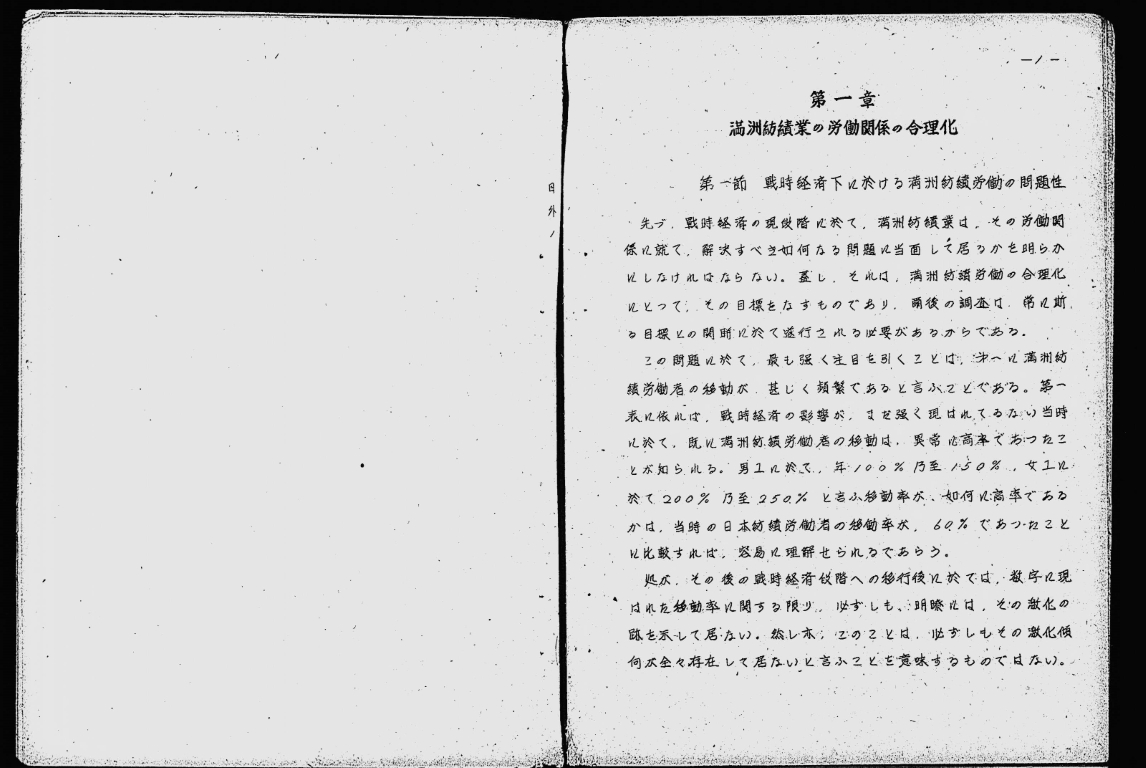 日外ノ
—1—
第一章
満洲紡績業の労働関係の合理化
第一節 戦時経済下に於ける満洲紡績労働の問題性
先づ、戦時経済の現段階に於て、満洲紡績業は、その労働関
係に就て、解決すべき如何なる問題に当面して居るかを明らか
にしなければならない。蓋し、それは、満洲紡績労働の合理化
にとって、その目標をなすものであり、爾後の調査は、常に斯
る目標との関聯に於て遂行される必要があるからである。
この問題に於て、最も強く注目を引くことは、第一に満洲紡
績労働者の移動が、甚しく頻繁であると言ふことである。第一
表に依れば、戦時経済の影響が、まだ強く現はれてゐない当時
に於て、既に満洲紡績労働者の移動は、異常に高率であつたこ
とが知られる。男工に於て、年100%乃至150%、女工に
於て200%乃至250%と言ふ移動率が、如何に高率である
かは、当時の日本紡績労働者の移動率が、60%であつたこと
に比較すれば、容易に理解せられるであらう。
処が、その後の戦時経済段階への移行後に於ては、数字に現
はれた移動率に関する限り、必ずしも、明瞭には、その激化の
跡を示して居ない。然し本、このことは、必ずしもその激化傾
向が全々存在して居ないと言ふことを意味するものではない。